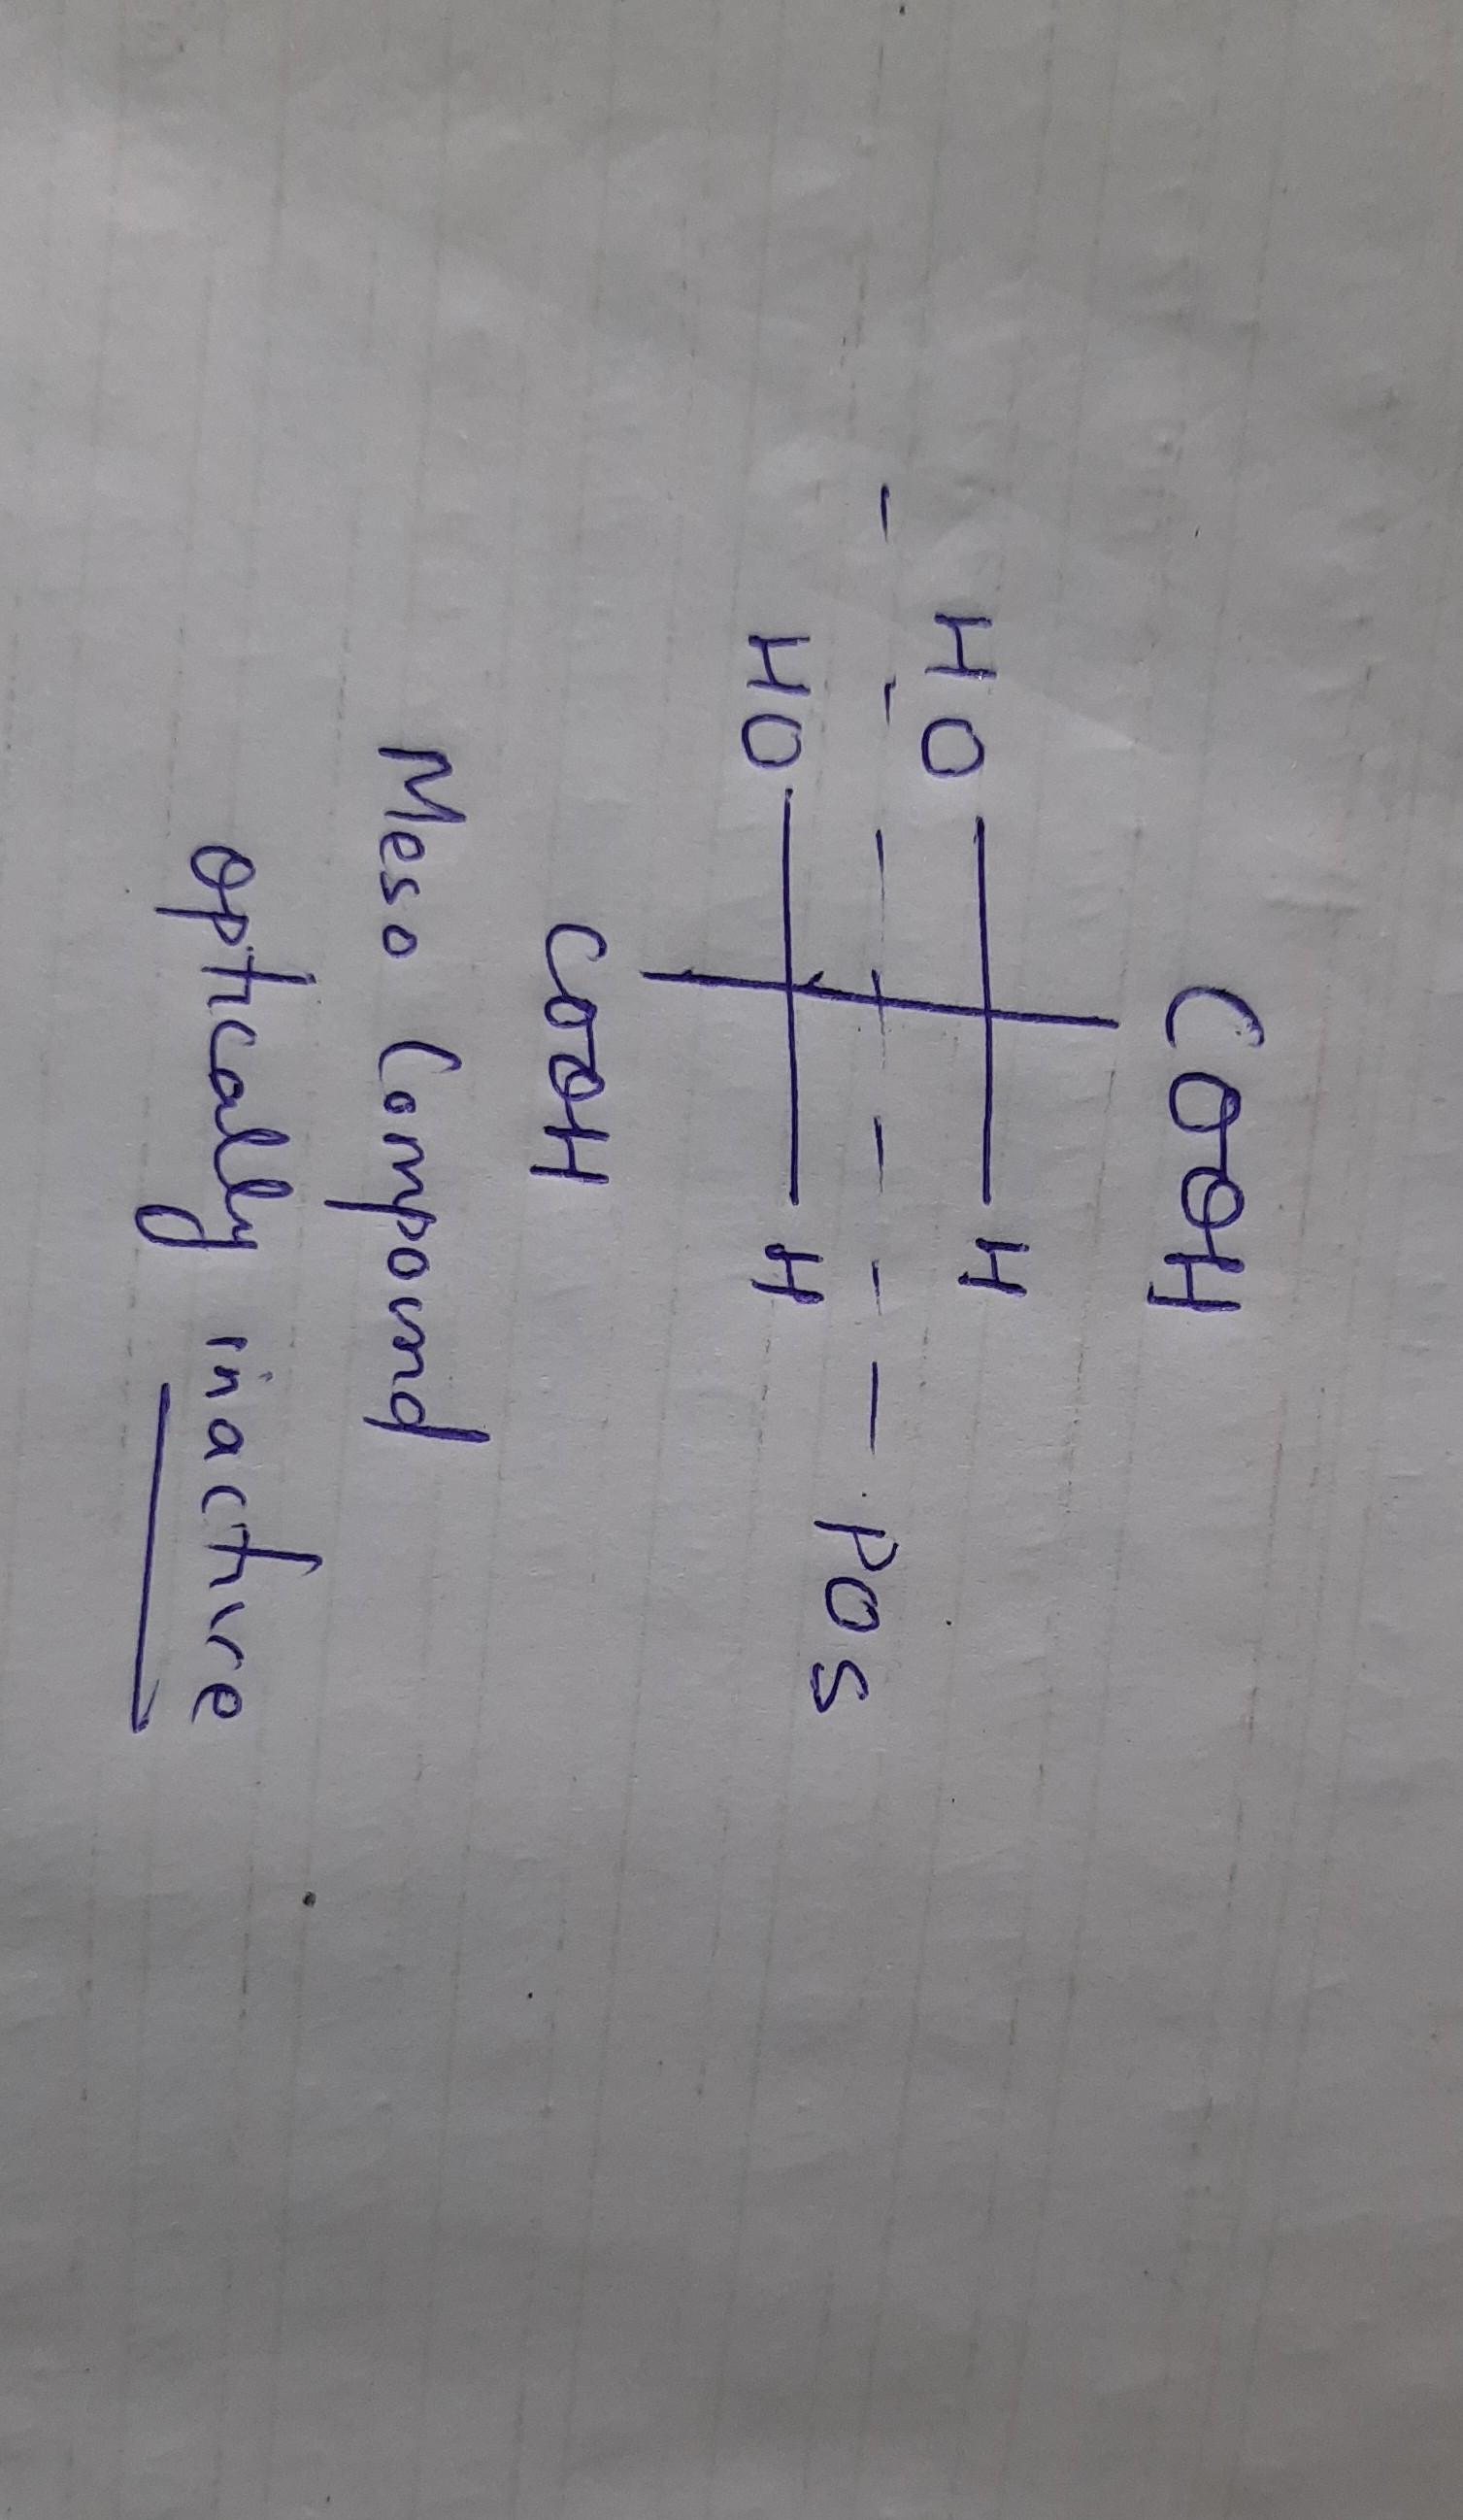 COOH
HO H
POS
HO H
COOH
Meso Compound
optically inactive